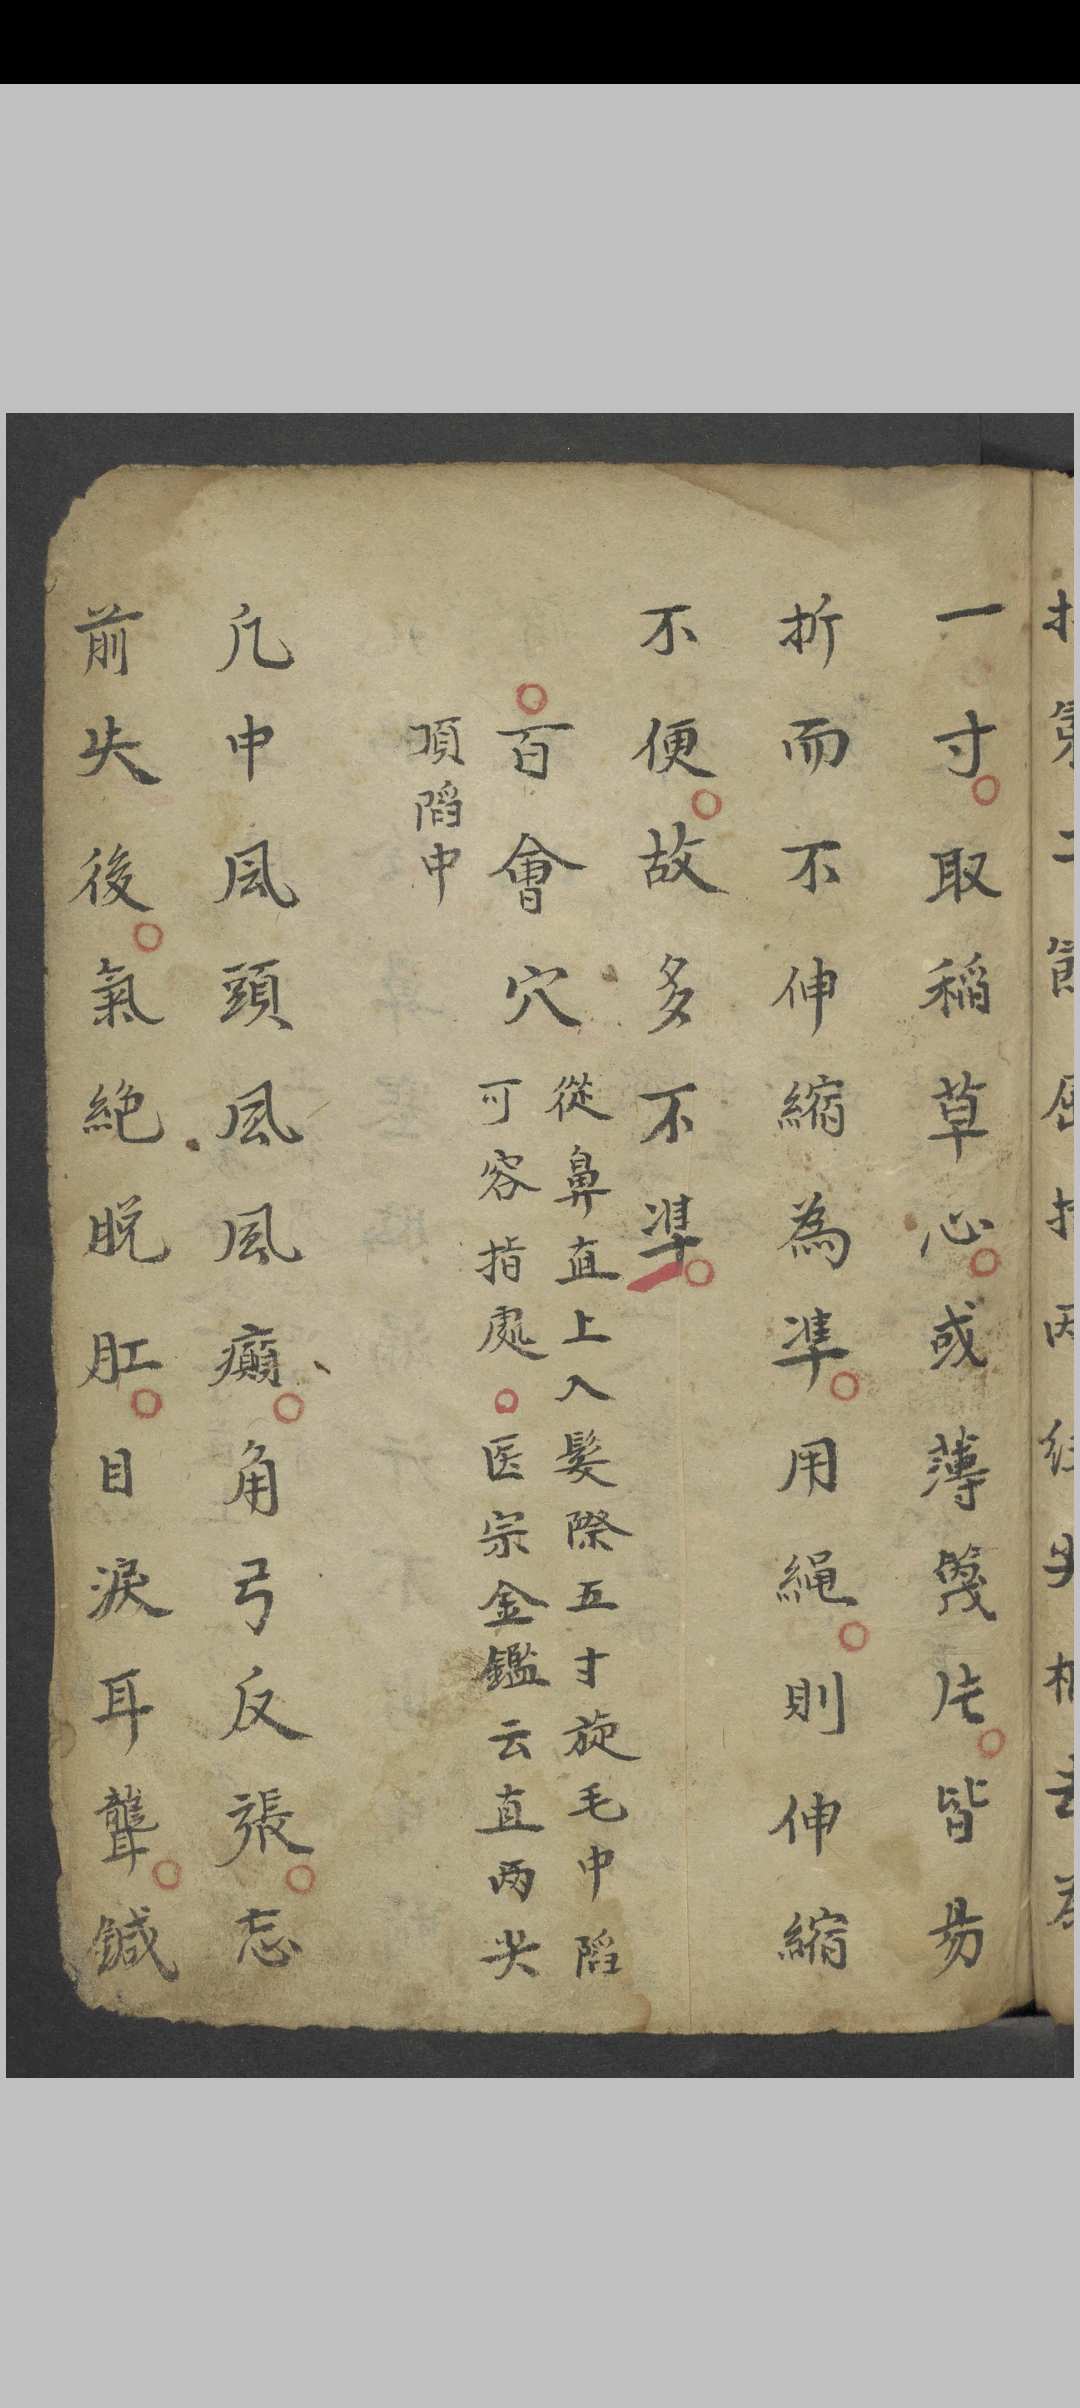 一寸取稻草心或薄篾片皆易
折而不伸縮為準用繩則伸縮
不便故多不準
百會穴
從鼻直上入髮際五寸旋毛中陷
可容指處医宗金鑑云直两尖
項陷中
凡中風頭風風癲角弓反張忘
前失後氣絕脱肛目淚耳聾鍼